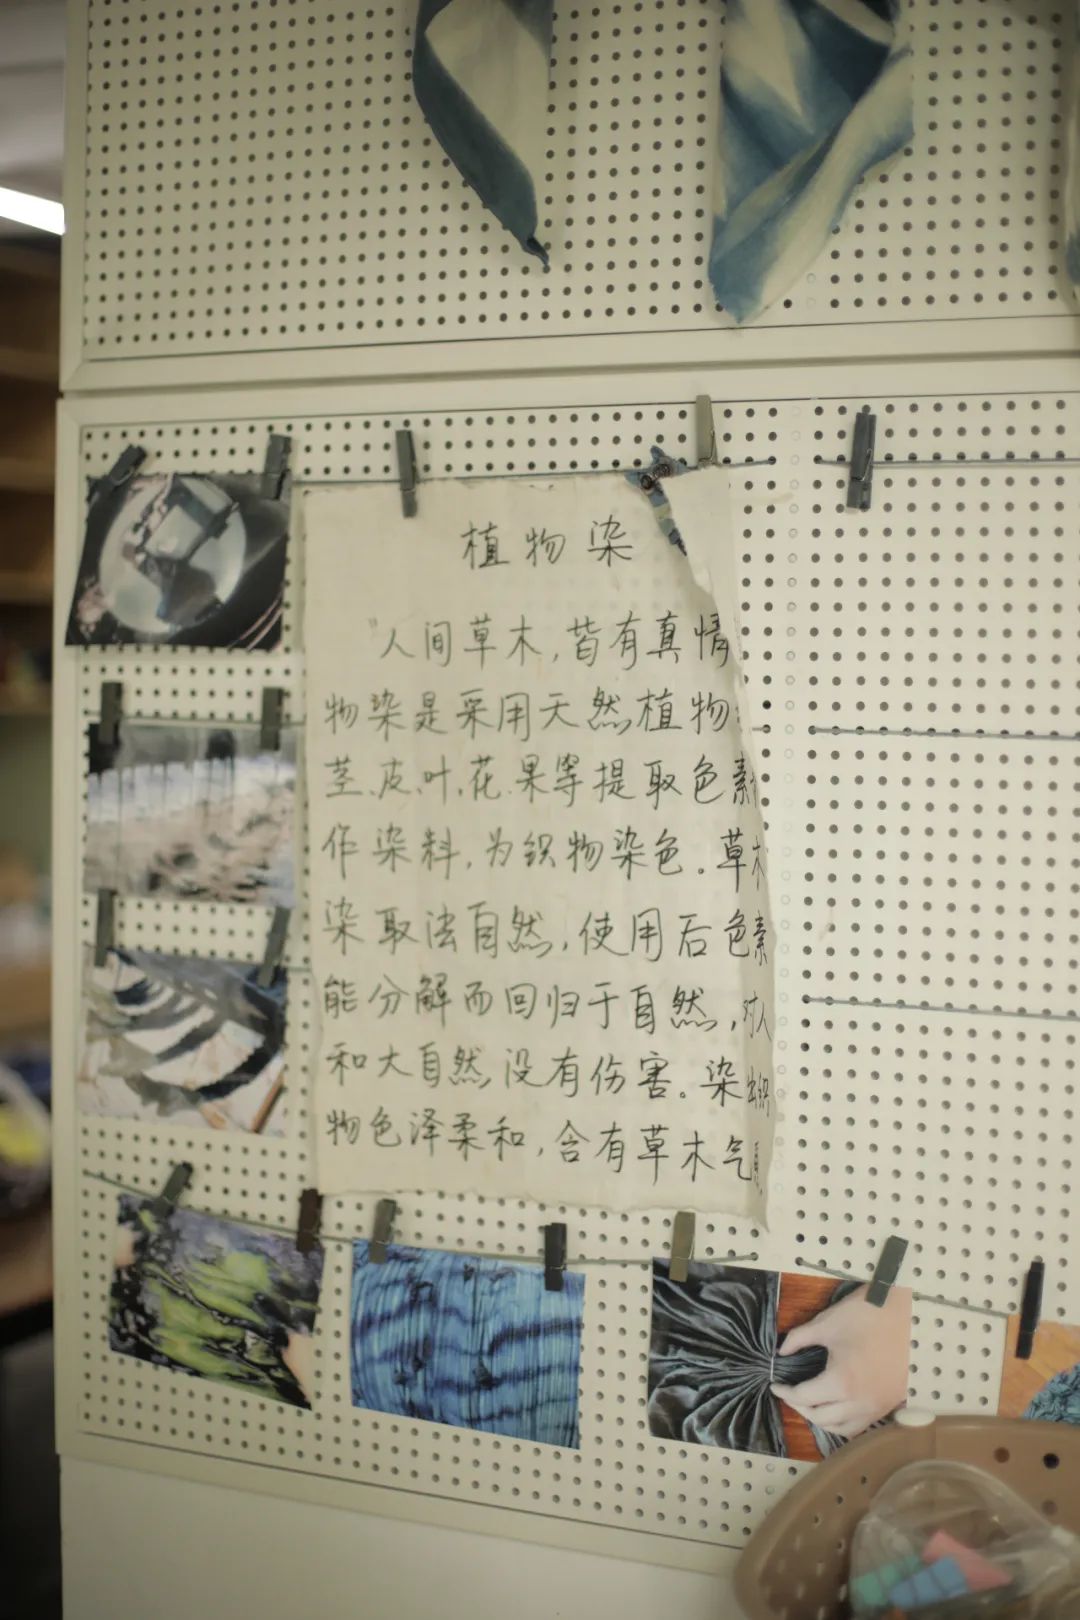 植物染
"人间草木,皆有真情
物染是采用天然植物
茎、皮、叶、花、果等提取色素
作染料,为织物染色。草木
染取法自然,使用后色素
能分解而回归于自然,对人
和大自然没有伤害。染出织
物色泽柔和,含有草木气息.